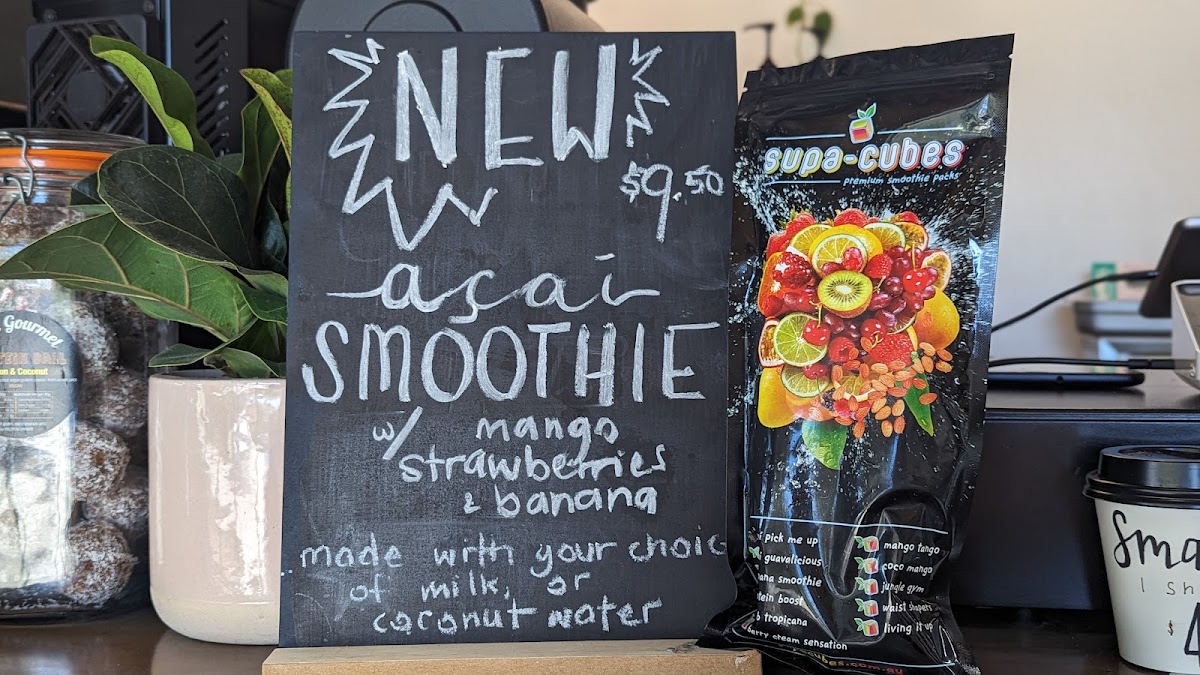 NEW
$9.50
açaí
SMOOTHIE
w/ mango
strawberries
& banana
made with your choic
of milk, or
coconut water
supa-cubes
premium smoothie packs
pick me up
guavalicious
smoothie
boost
tropicana
cream sensation
mango tango
coco mango
jungle gym
waist shapers
living it up
Gourmet
& Coconut
Sma
I sh
$ 4